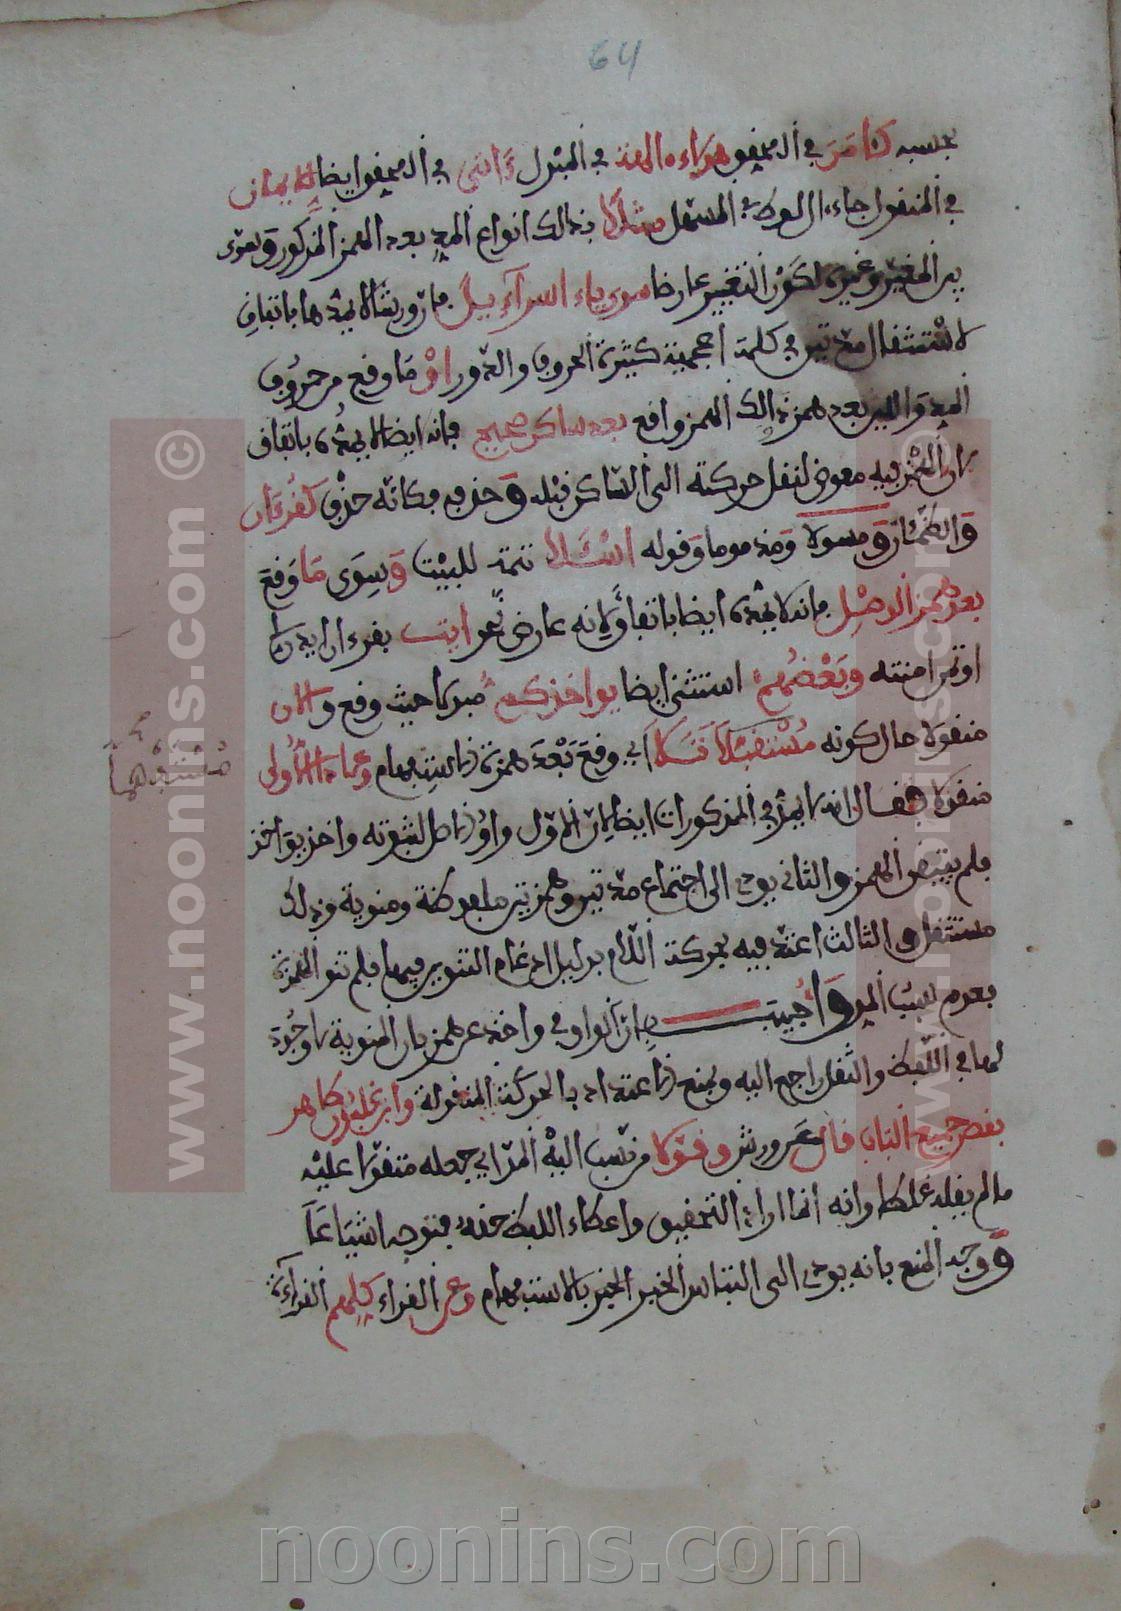 64
بحسبه كئامن في المحقق هؤلاء الهة في المبدل وءاتى في المحقق ايضا للايمان
في المنقول جاء ال لوط في المسهل مثلا بذلك انواع المد بعد الهمز المذكور وتعرى
بين المغير وغيره لكون التغيير عارضا سوى ياء اسراءيل فان ورشا لا يمدها باتفاق
لاستثقال مدتين في كلمة اعجمية كثيرة الحروف والدور او ما وقع من حروف
المد واللين بعد همز ذلك الهمز واقع بعد ساكن صحيح فانه ايضا لا يمده باتفاق
لان الهمز فيه معوض لنقل حركته الى الساكن قبله وحذفه فكانه حذف كقرءان
والظمئان ومسئولا ومذءوما وقوله اسئلا تتمة للبيت وسوى ما وقع
بعد همز الوصل فانه لا يمده ايضا باتفاق لانه عارض نحو ايت بقرءان ايذن لي
اوتمن امنته وبعضهم استثنى ايضا يواخذكم مبدلا حيث وقع والان
منقولا حال كونه مستفهما تلا اي وقع بعد همزة الاستفهام وعادا الاولى
منقولا فقال انه لا يمد في المذكورات ايضا لان الاول واو الاصل لثبوته واخذ يواخذ
فلم يبق الهمز والثاني يودي الى اجتماع مدتين وهمزتين ملفوظة ومنوية وذلك
مستثقل والثالث اعتد فيه بحركة اللام بدليل ادغام التنوين فيها فلم تنو الهمزة
بعدم سبب المد واجيب بان الواو في واخذ عن همز بان المنوية لا وجود
لها في اللفظ والثقل راجع اليه وبمنع الاعتداد بالحركة المنقولة وابن غلبون طاهر
بقصر جميع الباب قال عن ورش وقولا من نسب اليه المد اي جعله متقولا عليه
ما لم يقله غلطا وانه انما اراد التحقيق واعطاء اللفظ حقه فتوجه اشباعا
ووجه المنع بانه يودي الى التباس الخبر بالاستفهام وعن القراء كلهم القراءة
مستفهما
www.noonins.com ©
www.noonins.com ©
noonins.com